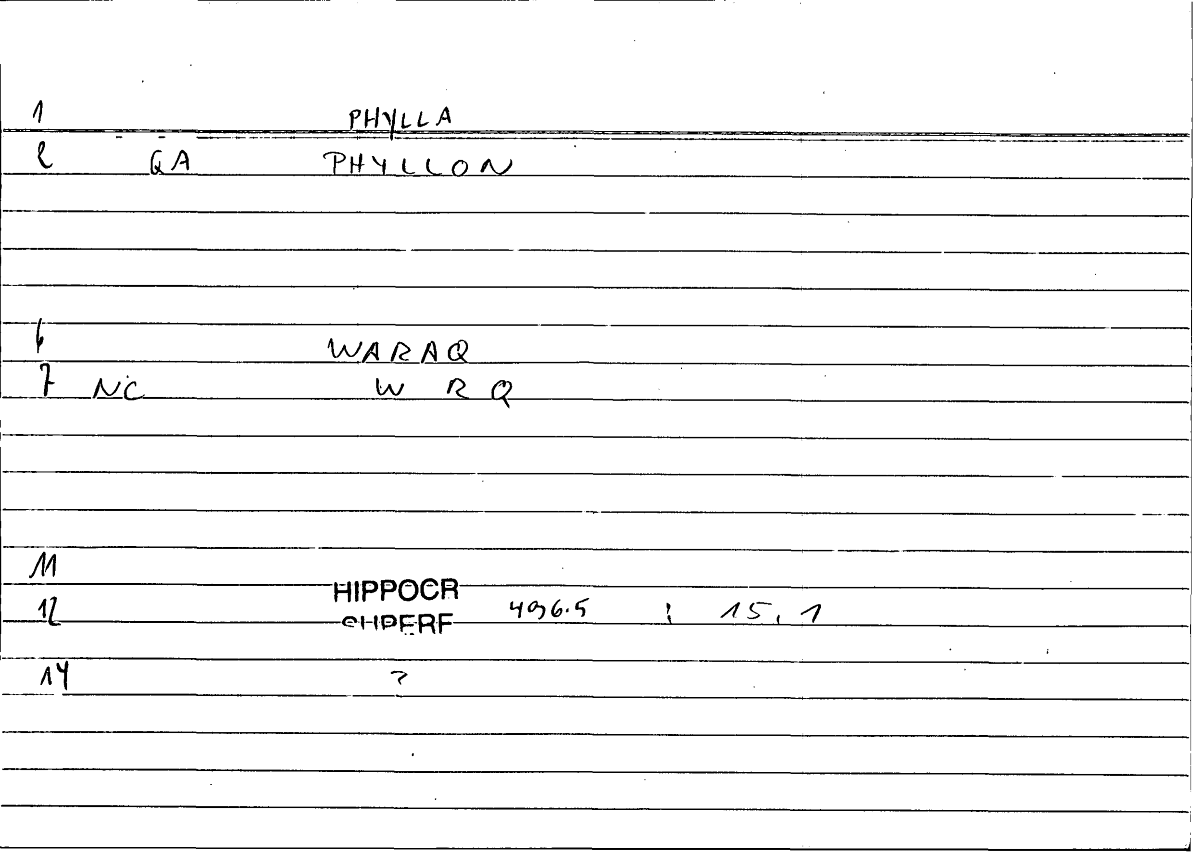 1 PHYLLA
2 GA PHYLLON
6 WARAQ
7 NC W R Q
11
HIPPOCR
12 SUPERF 496.5 : 15,1
14 ?